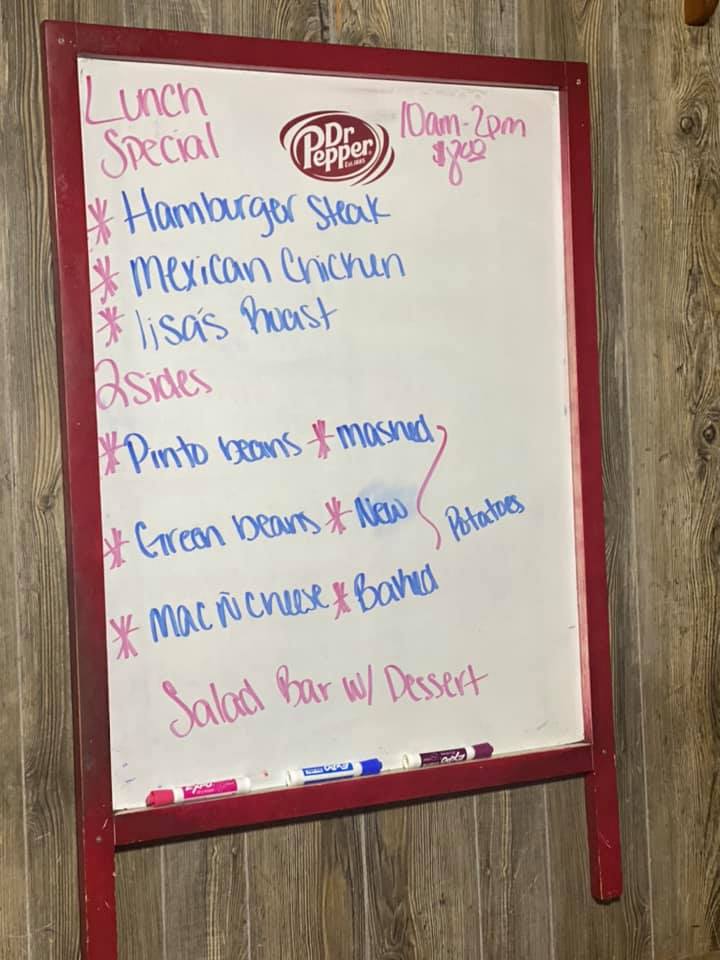 Lunch
Special
Dr Pepper
EST. 1885
10am-2pm
$8.00
* Hamburger Steak
* Mexican Chicken
* lisa's Roast
2 Sides
* Pinto beans * mashed
* Green beans * New } Potatoes
* Mac n cheese * Baked
Salad Bar w/ Dessert
EXPO
EXPO
EXPO